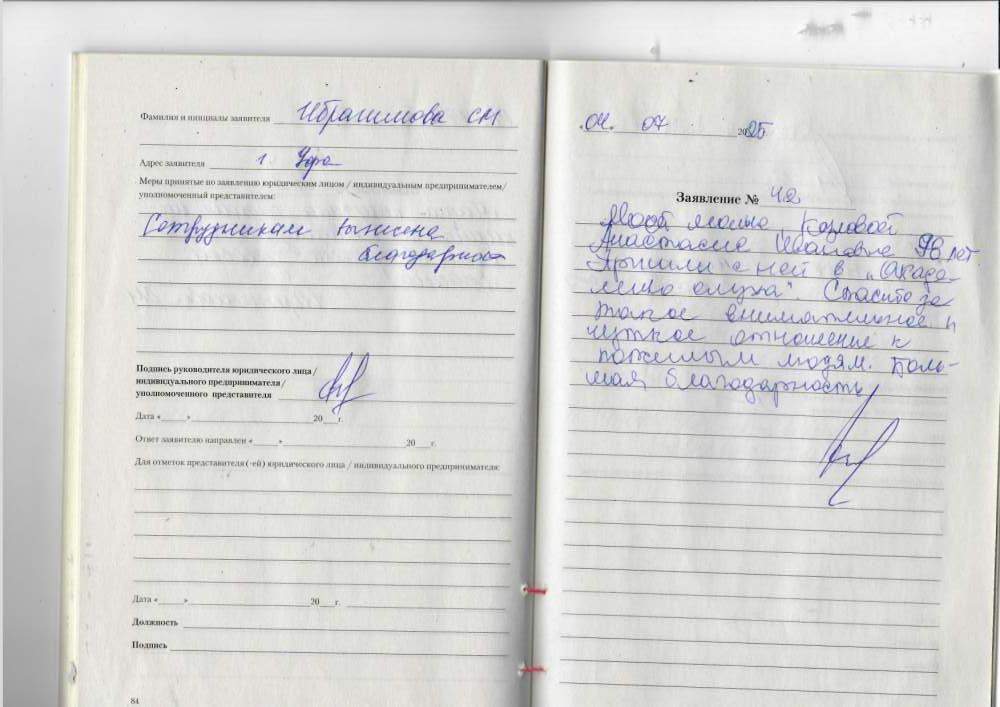 Фамилия и инициалы заявителя Ибрагимова СМ
Адрес заявителя г Уфа
Меры принятые по заявлению юридическим лицом / индивидуальным предпринимателем/
уполномоченный представителем:
Сотрудникам вынесена
благодарность
Подпись руководителя юридического лица /
индивидуального предпринимателя /
уполномоченного представителя
Дата «____» ____ 20__г.
Ответ заявителю направлен «____» ____ 20__г.
Для отметок представителя (-ей) юридического лица / индивидуального предпринимателя:
Дата «____» ____ 20__г.
Должность
Подпись
84
04. 07 2025
Заявление № 42
Моей маме, Козловой
Анастасие Ивановне 98 лет
Пришли с ней в „Акаде-
мию слуха". Спасибо за
такое внимательное и
чуткое отношение к
пожилым людям. Боль-
шая благодарность